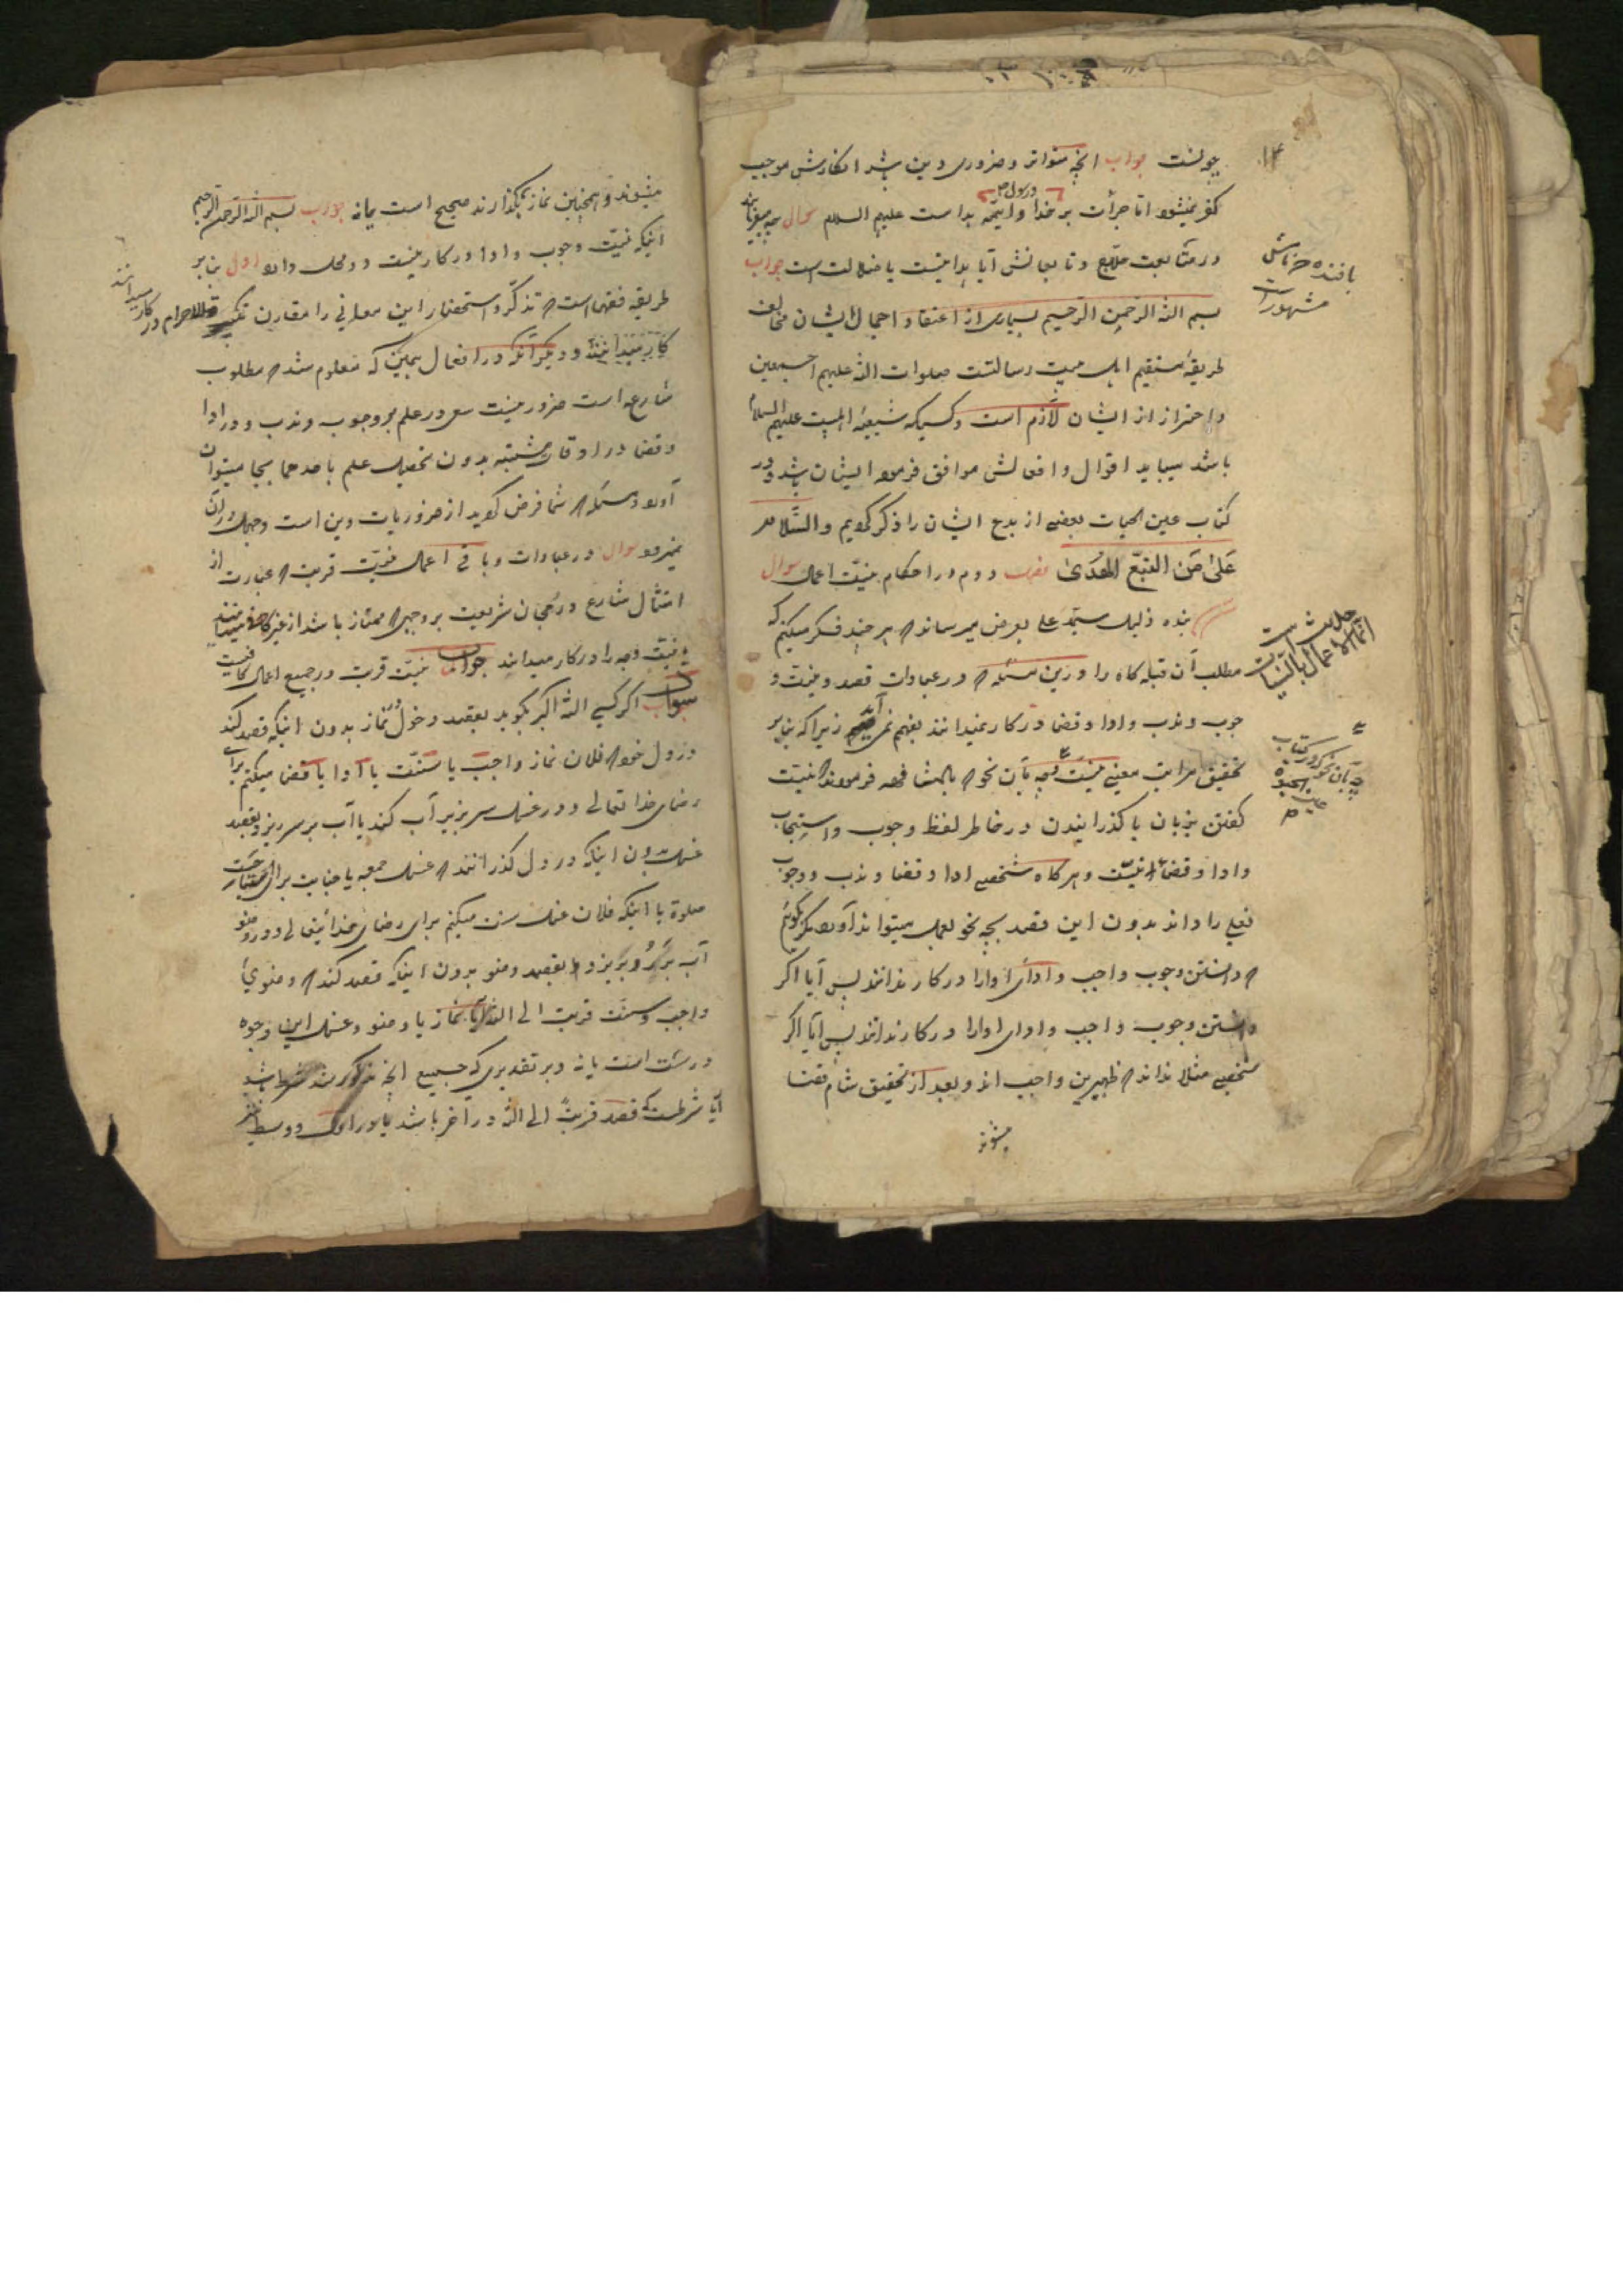 چونست جواب انچه متواتر و ضروری دین باشد انکارش موجب
کفر میشود اما جرأت بر خدا و رسول و ایمه بد است علیهم السلام سوال چه میفرمایند
در متابعت ملا و تابعانش آیا بد نیست یا ضلالت است جواب
بسم الله الرحمن الرحیم بسیاری از اعتقاد و احمال ایشان مخالف
طریقهٔ مستقیم اهل بیت رسالتست صلوات الله علیهم اجمعین
و احتراز از ایشان لازم است و کسیکه شیعهٔ اهلبیت علیهم السلام
باشد میباید اقوال و افعالش موافق فرموده ایشان باشد و در
کتاب عین الحیات بعضی از بدع ایشان را ذکر کردیم والسلام
علی من اتبع الهدی فصل دوم در احکام نیت اعمال سوال
بنده ذلیل سید علی بعرض میرساند که هر چند فکر میکنم که
مطلب آن قبله گاه را در این مسئله که در عبادات قصد و نیت و
جوب و ندب و ادا و قضا در کار نمیدانند بفهم نمی آید زیرا که بنابر
تحقیق مراتب معنی نیت چه بآن نحو که بالمشافهه فرمودند نیت
گفتن بزبان یا گذرانیدن در خاطر لفظ وجوب و استحباب
و ادا و قضا نیست و هر گاه شخصی ادا و قضا و ندب و وجوب
فعلی را داند بدون این قصد بچه نحو بعمل میتواند آورد مگر بگوئیم
که دانستن وجوب واجب و ادای ادا را در کار ندانند پس آیا اگر
دانستن وجوب واجب و ادای ادا را در کار ندانند پس آیا اگر
شخصی مثلا نداند که ظهرین واجب اند و بعد از تحقیق شام قضا
میشوند
بافنده
مشهور است
حدیث است
انما الاعمال بالنیات
میشوند و همچنین نماز بگذارند صحیح است یا نه جواب بسم الله الرحمن الرحیم
اینکه نیت وجوب و ادا در کار نیست دو محل دارد اول بنابر
طریقه فقها است که تذکر و استحضار این معانی را مقارن تکبیرة الاحرام در کار میدانند
و دیگر آنکه در افعال همین که معلوم شد که مطلوب
شارع است ضرور نیست سعی در علم بوجوب و ندب و در ادا
و قضا در اوقات مشتبه بدون تحصیل علم باحدهما بجا میتوان
آورد و مسئله که شما فرض کرده اید از ضروریات دین است و جهل در آن
نمیرود سوال در عبادات و باقی اعمال نیت قربت که عبارت از
امتثال شارع و رجحان شریعت بر وجهی که ممتاز باشد از غیر کافی میدانند
یا نیت وجه را در کار میدانند جواب نیت قربت در جمیع اعمال کافیست
سوال اگر کسی الله اکبر بگوید بقصد دخول نماز بدون اینکه قصد کند
در دل خود که فلان نماز واجب یا سنت یا ادا یا قضا میکنم برای
رضای خدا تعالی و در غسل سر بزیر آب کند یا آب بر سر ریزد بقصد
غسل بدون اینکه در دل گذرانند که غسل جمعه یا جنابت برای
صلوة یا اینکه فلان غسل سنت میکنم برای رضای خدا یتعالی و در وضو
آب بر رو بریزد بقصد وضو بدون اینکه قصد کند که وضوی
واجب و سنت قربت الی الله آیا نماز یا وضو و غسل این وجوه
درست است یا نه و بر تقدیری که جمیع انچه مذکور شد شرط باشد
آیا شرطست که قصد قربة الی الله در آخر باشد یا در اول و وسط